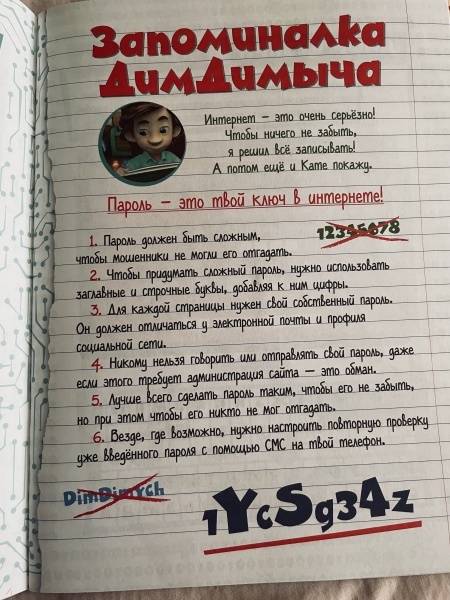 Запоминалка
ДимДимыча
Интернет – это очень серьёзно!
Чтобы ничего не забыть,
я решил всё записывать!
А потом ещё и Кате покажу.
Пароль – это твой ключ в интернете!
1. Пароль должен быть сложным,
чтобы мошенники не могли его отгадать.
12345678
2. Чтобы придумать сложный пароль, нужно использовать
заглавные и строчные буквы, добавляя к ним цифры.
3. Для каждой страницы нужен свой собственный пароль.
Он должен отличаться у электронной почты и профиля
социальной сети.
4. Никому нельзя говорить или отправлять свой пароль, даже
если этого требует администрация сайта – это обман.
5. Лучше всего сделать пароль таким, чтобы его не забыть,
но при этом чтобы его никто не мог отгадать.
6. Везде, где возможно, нужно настроить повторную проверку
уже введённого пароля с помощью СМС на твой телефон.
DimDimych
1YcSg34z